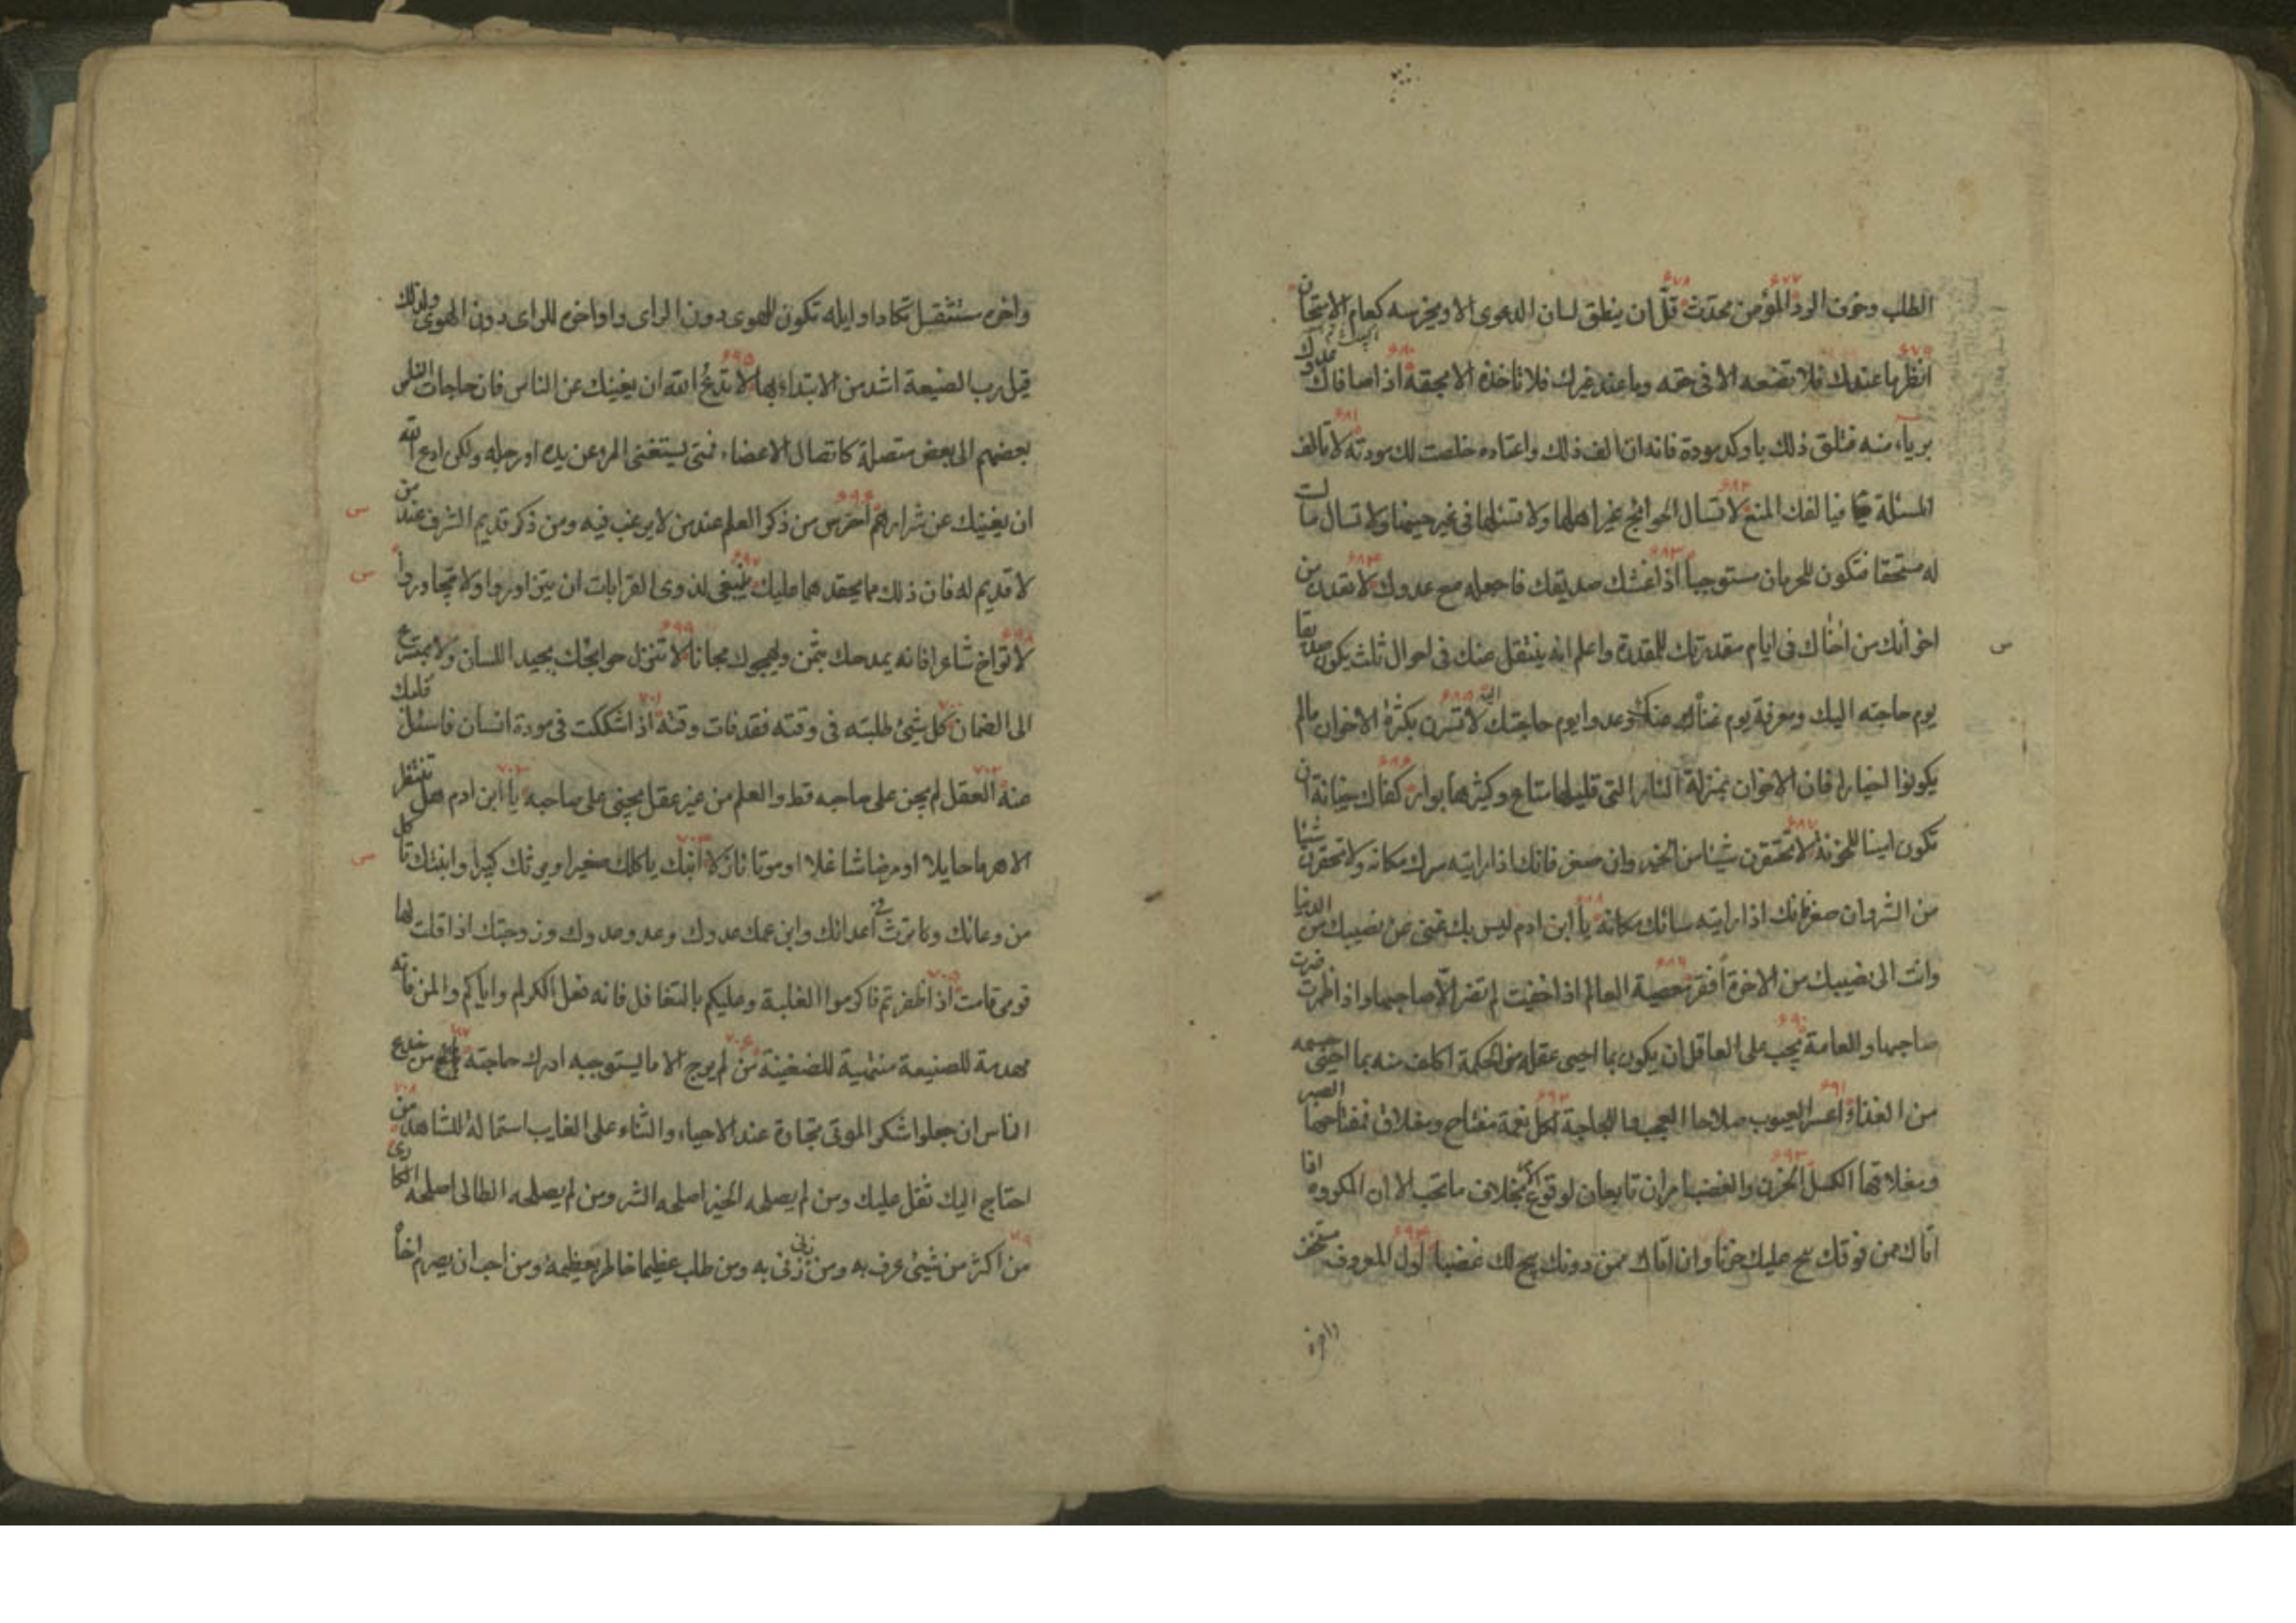 الطلب وخوف الرد المؤمن محدث قل ان ينطق لسان الدعوى الا ويخرسه كعام الامتحان
انظر ما عندك فلا تضعه الا فى حقه وما عند غيرك فلا تاخذه الا بحقه اذا صافاك عدوك
برياء منه فتلق ذلك باوكد مودة فانه ان الف ذلك واعتاده خلصت لك مودته لا تالف
المسئلة فيالفك المنع لا تسال الحوائج غير اهلها ولا تسئلها فى غير حينها ولا تسال ما لست
له مستحقا فتكون للحرمان مستوجبا اذا غشك صديقك فاجعله مع عدوك لا تعدن من
اخوانك من اخاك فى ايام مقدرتك للمقدرة واعلم انه ينتقل عنك فى احوال ثلث يكون صديقا
يوم حاجته اليك ومعرفة يوم غناك عنك وعدوا يوم حاجتك اليه لا تسرن بكثرة الاخوان مالم
يكونوا اخيارا فان الاخوان بمنزلة النار التى قليلها متاع وكثيرها بوار كفاك خيانة ان
تكون امينا للخونة لا تحتقرن شيئا من الخير وان صغر فانك اذا رايته سرك مكانه ولا تحقرن شيئا
من الشر وان صغر فانك اذا رايته سائك مكانه يا ابن ادم ليس بك غنى عن نصيبك من الدنيا
وانت الى نصيبك من الاخرة افقر معصية العالم اذا خفيت لم تضر الا صاحبها واذا ظهرت ضرت
صاحبها والعامة يجب على العاقل ان يكون بما احيى عقله من الحكمة اكلف منه بما احيى جسمه
من الغذاء اعسر العيوب صلاحا العجب واللجاجة لكل نعمة مفتاح ومغلاق فمفتاحها الصبر
ومغلاقها الكسل الحزن والغضب اميران تابعان لوقوع الامر بخلاف ما تحب الا ان المكروه اذا
اتاك ممن فوقك نتج عليك حزنا وان اتاك ممن دونك نتج لك غضبا اول المعروف مستخف
واخره
واخره مستثقل تكاد اوايله تكون للهوى دون الراى واواخره للراى دون الهوى ولذلك
قيل رب الصنيعة اشد من الابتداء بها لا تدع الله ان يغنيك عن الناس فان حاجات الناس
بعضهم الى بعض متصلة كاتصال الاعضاء فمتى يستغنى المرء عن يده او رجله ولكن ادع الله
ان يغنيك عن شرارهم احترس من ذكر العلم عند من لا يرغب فيه ومن ذكر قديم الشرف عند من
لا قديم له فان ذلك مما يحقدهما عليك ينبغى لذوى القرابات ان يتزاوروا ولا يتجاوروا
لا تواخ شاعرا فانه يمدحك بثمن ويهجوك مجانا لا تنزل حوائجك بجيد اللسان ولا بمتسرع
الى الضمان كل شيئ طلبته فى وقته فقد فات وقته اذا شككت فى مودة انسان فاسئل قلبك
عنه العقل لم يجن على صاحبه قط والعلم من غير عقل يجنى على صاحبه يا ابن ادم هل تنتظر
الا هرما حايلا او مرضا شاغلا او موتا نازلا ابنك ياكلك صغيرا ويرثك كبيرا وابنتك تاكل
من وعائك وترث من اعدائك وابن عمك عدوك وعدو عدوك وزوجتك اذا قلت لها
قومى قامت اذا ظفرتم فاكرموا الغلبة وعليكم بالتغافل فانه فعل الكرام واياكم والمن فانه
مهدمة للصنيعة منبهة للضغينة من لم يرج الا ما يستوجبه ادرك حاجته بلغ من خدع
الناس ان جعلوا شكر الموتى تجارة عند الاحياء والثناء على الغايب استمالة للشاهد من
احتاج اليك ثقل عليك ومن لم يصلحه الخير اصلحه الشر ومن لم يصلحه الطالى اصلحه الكاوى
من اكثر من شيئ عرف به ومن زنى زنى به ومن طلب عظيما خاطر بعظيمه ومن احب ان يصرم اخاه